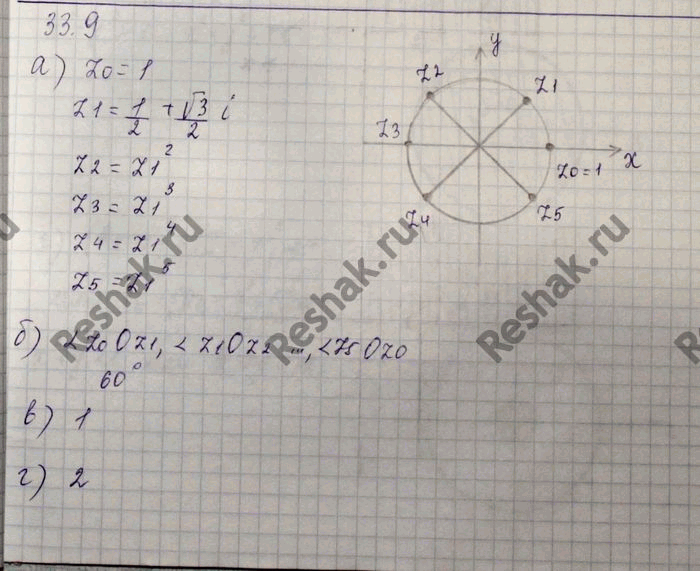 33.9
а) z0 = 1
z1 = 1/2 + √3/2 i
z2 = z1²
z3 = z1³
z4 = z1⁴
z5 = z1⁵
y
z2
z1
z3
z0=1
x
z4
z5
б) ∠z0Oz1, ∠z1Oz2 ..., ∠z5Oz0
60°
в) 1
г) 2
Reshak.ru
Reshak.ru
Reshak.ru
Reshak.ru
Reshak.ru